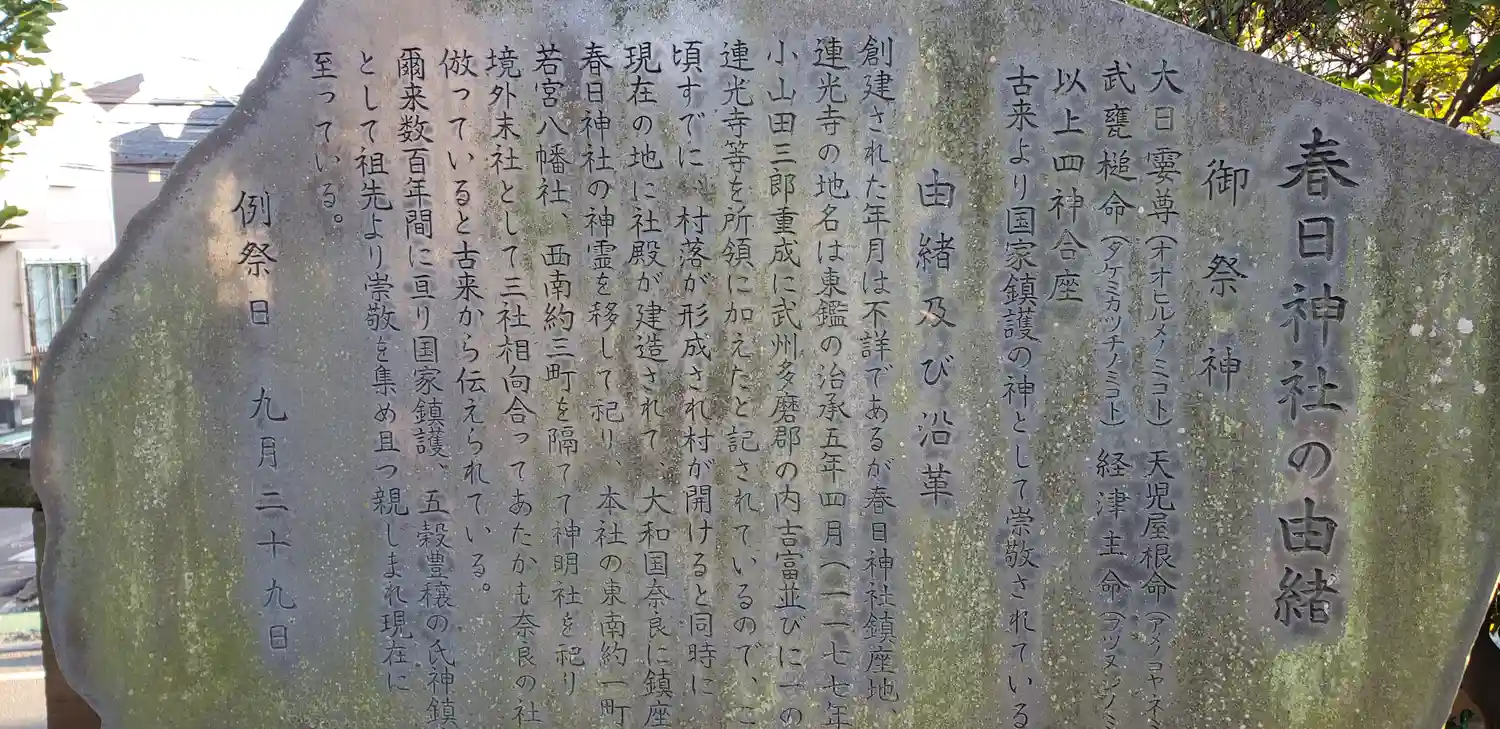 春日神社の由緒
御祭神
大日孁尊(オオヒルメノミコト)天児屋根命(アメノコヤネミ
武甕槌命(タケミカツチノミコト)経津主命(フツヌシノミ
以上四神合座
古来より国家鎮護の神として崇敬されている
由緒及び沿革
創建された年月は不詳であるが春日神社鎮座地、
連光寺の地名は東鑑の治承五年四月(一一七七年
小山田三郎重成に武州多磨郡の内吉富並びに一の
連光寺等を所領に加えたと記されているので、こ
頃すでに、村落が形成され村が開けると同時に
現在の地に社殿が建造されて、大和国奈良に鎮座
春日神社の神霊を移して祀り、本社の東南約一町
若宮八幡社、西南約三町を隔てて神明社を祀り
境外末社として三社相向合ってあたかも奈良の社
倣っていると古来から伝えられている。
爾来数百年間に亘り国家鎮護、五穀豊穣の氏神鎮
として祖先より崇敬を集め且つ親しまれ現在に
至っている。
例祭日 九月二十九日